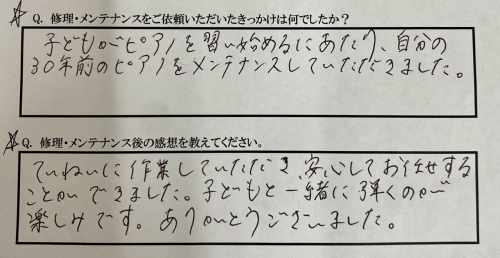 ☆Q. 修理・メンテナンスをご依頼いただいたきっかけは何でしたか？
子どもがピアノを習い始めるにあたり、自分の
30年前のピアノをメンテナンスしていただきました。
☆Q. 修理・メンテナンス後の感想を教えてください。
ていねいに作業していただき、安心してお任せする
ことができました。子どもと一緒に弾くのが
楽しみです。ありがとうございました。